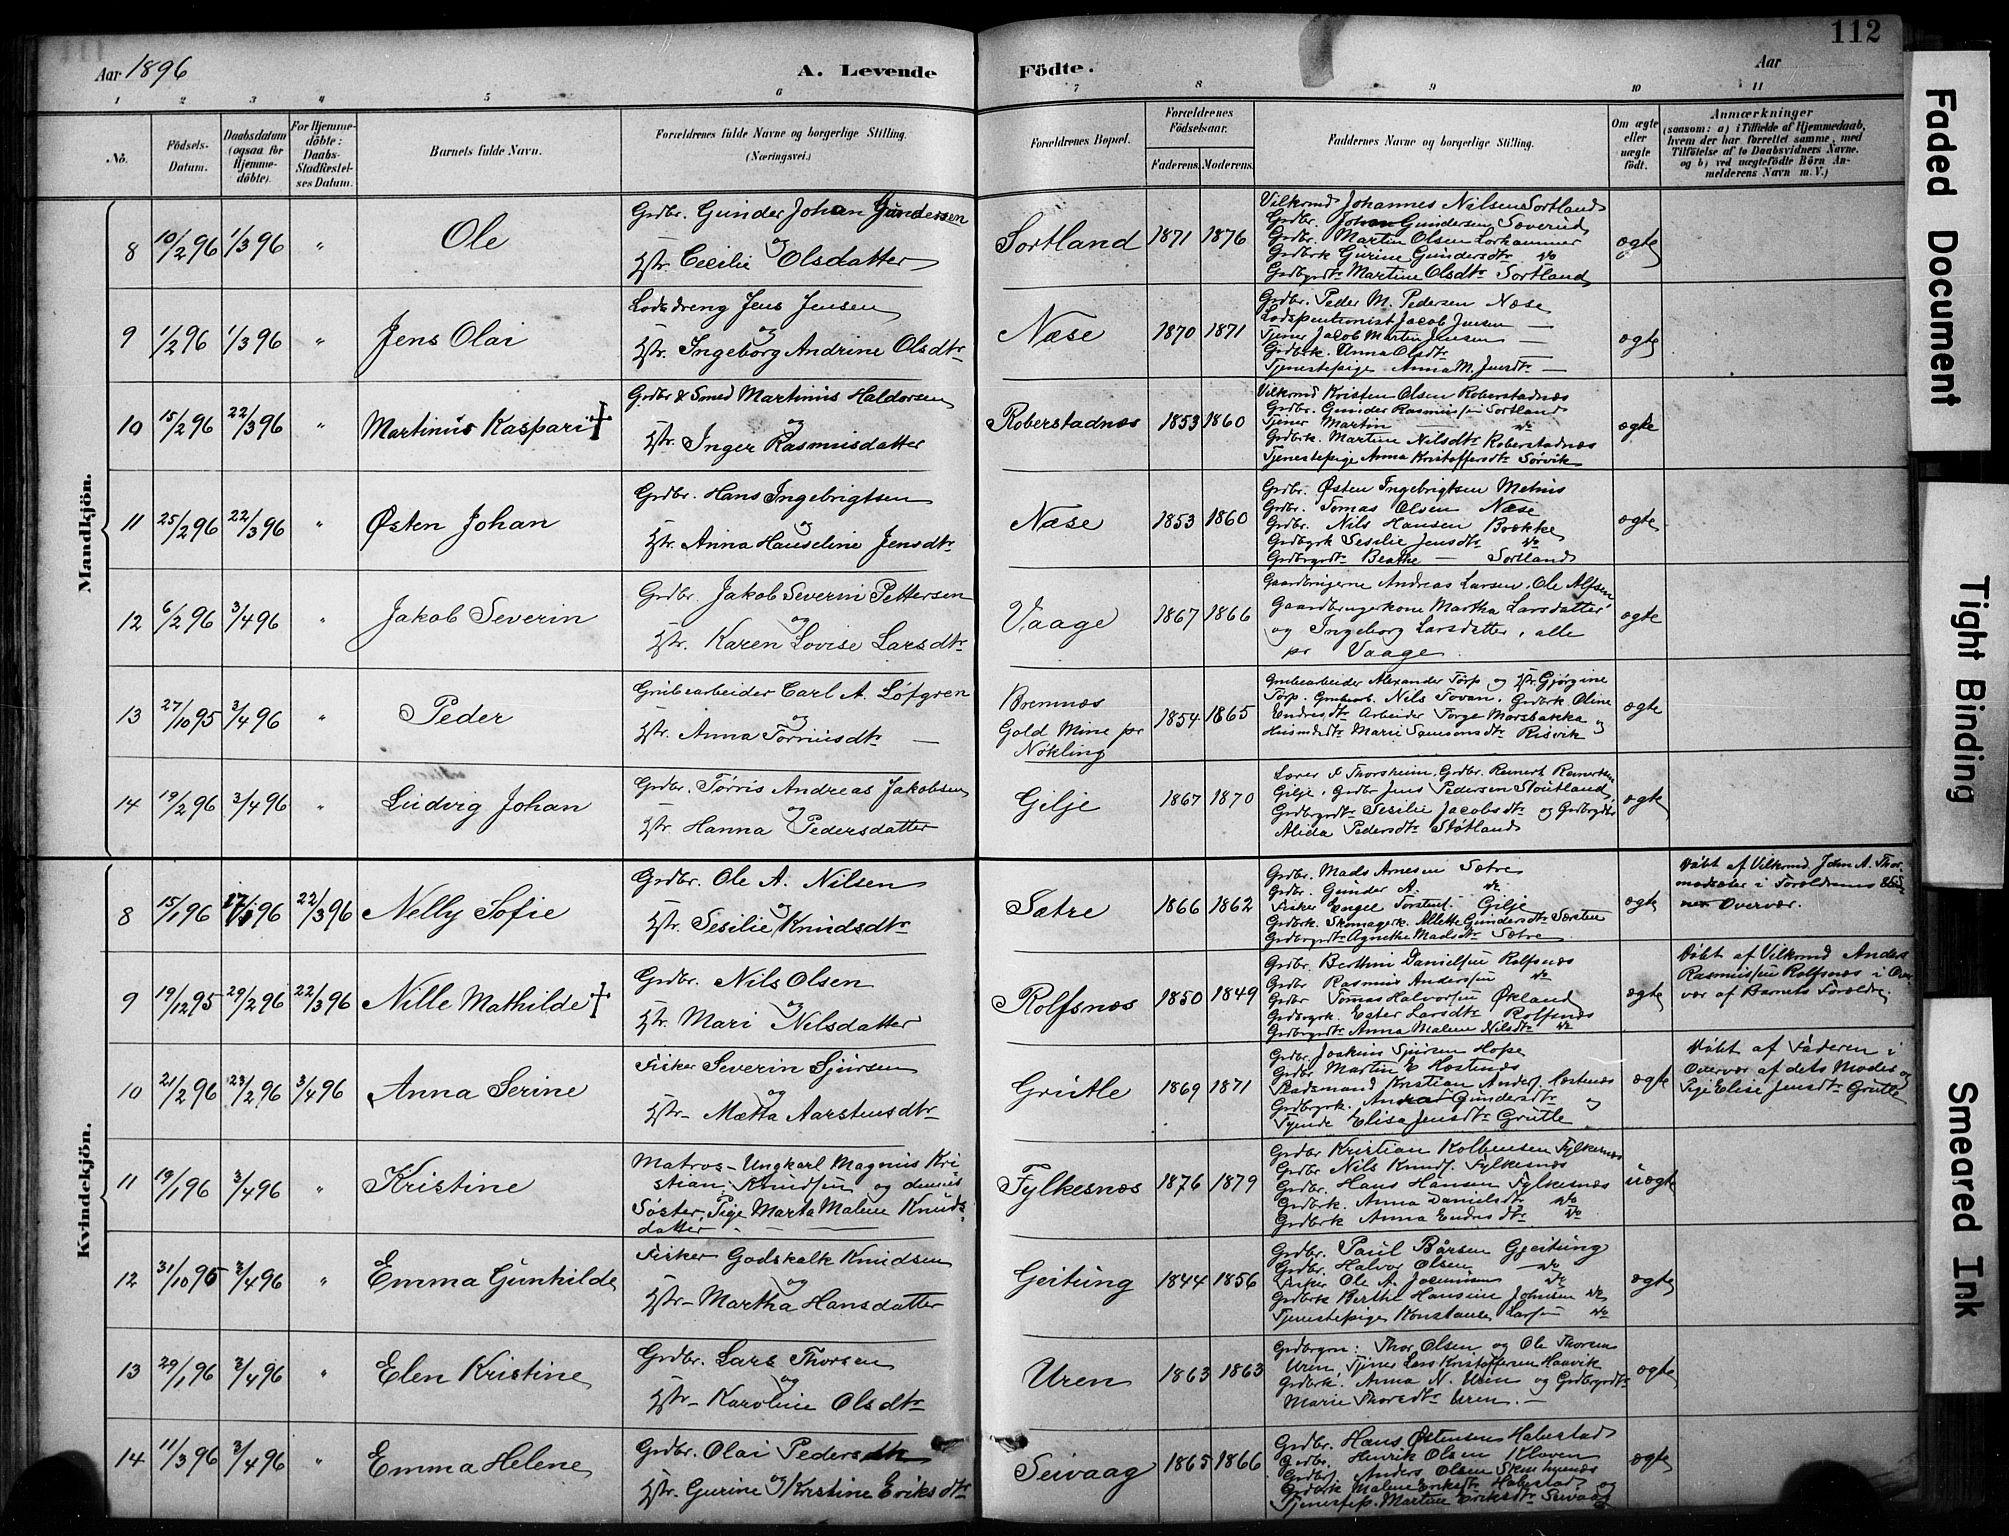 112
Aar 1896
A. Levende
Födte.
Aar
1 2 3 4 5 6 7 8 9 10 11
No.
Födsels-Datum.
Daabsdatum (ogsaa for Hjemme-döbte).
For Hjemme-döbte: Daabs-Stadfæstel-ses Datum.
Barnets fulde Navn.
Forældrenes fulde Navne og borgerlige Stilling. (Næringsvei.)
Forældrenes Bopæl.
Forældrenes Födselsaar.
Faderens. Moderens.
Faddernes Navne og borgerlige Stilling.
Om ægte eller uægte födt.
Anmærkninger
(saasom: a) i Tilfælde af Hjemmedaab, hvem der har forrettet samme, med Tilföielse af to Daabsvidners Navne, og b) ved uægtefödte Börn An-melderens Navn m. V.)
Mandkjön.
8 10/2 96 1/3 96 " Ole
Grdbr. Gunder Johan Gundersen
og
Hstr. Cecilie Olsdatter
Sortland 1871 1876
Vilkrmd Johannes Nilsen Sortland
Grdbr. Johan Gundersen Søverud
Grdbr. Martin Olsen Lorhammer
Grdbrk Gurine Gundersdtr do
Grdbrgdtr Martine Olsdtr Sortland
ægte
9 1/2 96 1/3 96 " Jens Olai
Lodsdreng Jens Jensen
og
Hstr. Ingeborg Andrine Olsdtr
Næse 1870 1871
Grdbr. Peder M. Pedersen Næse
Lodspentionist Jacob Jensen —
Tjener Jacob Martin Jensen —
Grdbrk. Anna Olsdtr —
Tjenestepige Anna M. Jensdtr —
ægte
10 15/2 96 22/3 96 " Martinus Kaspari †
Grdbr & Smed Martinus Haldorsen
og
Hstr. Inger Rasmusdatter
Roberstadnæs 1853 1860
Vilkrmd Kristen Olsen Roberstadnæs
Grdbr. Gunder Rasmussen Sortland
Tjener Martin — do
Grdbrk. Martine Nilsdtr Roberstadnæs
Tjenestepige Anna Kristoffersdtr Sørvik
ægte
11 25/2 96 22/3 96 " Østen Johan
Grdbr. Hans Ingebrigtsen
og
Hstr. Anna Hanseline Jensdtr
Næse 1853 1860
Grdbr. Østen Ingebrigtsen Mehus
Grdbr. Tomas Olsen Næse
Grdbr. Nils Hansen Boekke
Grdbrgk Sesilie Jensdtr do
Grdbrgdtr Beathe — Sortland
ægte
12 6/2 96 3/4 96 " Jakob Severin
Grdbr. Jakob Severin Pettersen
og
Hstr. Karen Lovise Larsdtr
Vaage 1867 1866
Gaardbrugerne Andreas Larsen, Ole Alfsen
Gaardbrugerkone Martha Larsdatter
og Ingeborg Larsdatter, alle
pr Vaage.
ægte
13 27/10 95 3/4 96 " Peder
Grubearbeider Carl A. Løfgren
og
Hstr. Anna Torriusdtr —
Bremnæs
Gold Mine pr
Nøkling
1854 1865
Grubearbeider Alexander Torp og Hstr. Gjørgine
Torp. Grubearb. Nils Tovan. Grdbrk Oline
Endresdtr Arbeider Torge Marsbakka og
Husmdsdtr Marie Samsonsdtr Risvik
ægte
14 19/2 96 3/4 96 " Ludvig Johan
Grdbr. Tørris Andreas Jakobsen
og
Hstr. Hanna Pedersdatter
Gilje 1867 1870
Lærer Thorsheim. Grdbr. Reinert Reinertsen
Gilje. Grdbr Jens Pedersen Støutland,
Grdbrgdtr Sesilie Jacobsdtr og Grdbrgdtr
Alida Pedersdtr Støtland
ægte
Kvindekjön.
8 15/1 96 17/1 96 22/3 96 Nelly Sofie
Grdbr. Ole A. Nilsen
og
Hstr. Sesilie Knudsdtr
Sætre 1866 1862
Grdbr. Mads Arnesen Sætre
Grdbr. Gunder A. do
Fisker Engel Torstens. Gilje
Grdbrk. Skomagerk. Allette Gundersdtr Sæsten
Grdbrgdtr Agnethe Madsdtr Sætre
ægte
Døbt af Vilkrmd. John A. Thor-
modsæter i Forældrenes
Overvær.
9 19/12 95 29/2 96 22/3 96 Nille Mathilde †
Grdbr. Nils Olsen
og
Hstr. Mari Nilsdatter
Rolfsnæs 1850 1849
Grdbr. Berthin Danielsen Rolfsnæs
Grdbr Rasmus Andersen do
Grdbr Tomas Halvorsen Økland
Grdbrgk. Ester Larsdtr Rolfsnæs
Grdbrgdtr Anna Malene Nilsdtr do
ægte
Døbt af Vilkrmd Anders
Rasmussen Rolfsnæs i Over
vær af Barnets Forældre.
10 21/2 96 23/2 96 3/4 96 Anna Serine
Fisker Severin Sjursen
og
Hstr. Mætta Aarstensdtr
Grutle 1869 1871
Grdbr Joakim Sjursen Hope
Grdbr Martin E Hestenæs
Baadsmand Kristian Anders. Hestenæs
Grdbrgk. Gundersdtr og
Tyende Elisa Jensdtr Grutle
ægte
Døbt af Faderen i
Overvær af dets Moder og
Pige Elise Jensdtr Grutle
11 19/1 96 3/4 96 " Kristine
Matros – Ungkarl Magnus Kri-
stian Knudsen og dennes
Søster, Pige Marta Malene Knuds-
datter. —
Fylkesnæs 1876 1879
Grdbr Kristian Kolbensen Fylkesnæs
Grdbr Nils Knuds. Fylkesnæs
Grdbr. Hans Hansen Fylkesnæs
Grdbrk. Anna Danielsdtr do
Grdbrk Anna Endresdtr do
uægte
12 31/10 95 3/4 96 " Emma Gunhilde
Fisker Godskalk Knudsen
og
Hstr. Martha Hansdatter
Geitung 1844 1856
Grdbr. Paul Bårsen Gjeitung
Grdbr. Halvor Olsen do
Fisker Ole A. do
Grdbrk Berthe Hansine Johnsen do
Tjenestepige Konstanse Larsen do
ægte
13 29/1 96 3/4 96 " Elen Kristine
Grdbr. Lars Thorsen
og
Hstr. Karoline Olsdtr
Uren 1863 1863
Grdbrgrn: Thor Olsen og Ole Thorsen
Uren, Tjener Lars Kristoffersen Haavik
Grdbrk. Anna N. Uren og Grdbrgdtr
Marie Thorsdtr Uren. —
ægte
14 11/3 96 3/4 96 " Emma Helene
Grdbr. Olai Pedersen
og
Hstr. Gurine Kristine Eriksdtr
Seivaag 1865 1866
Grdbr. Hans Østensen Habestad
Grdbr. Henrik Olsen Kloven
Grdbrf. Anders Olsen
Grdbrk Malene Eriksdtr Habestad, og
Tjenestep. Martine Eriksdtr Seivaag
ægte
Faded Document
Tight Binding
Smeared Ink